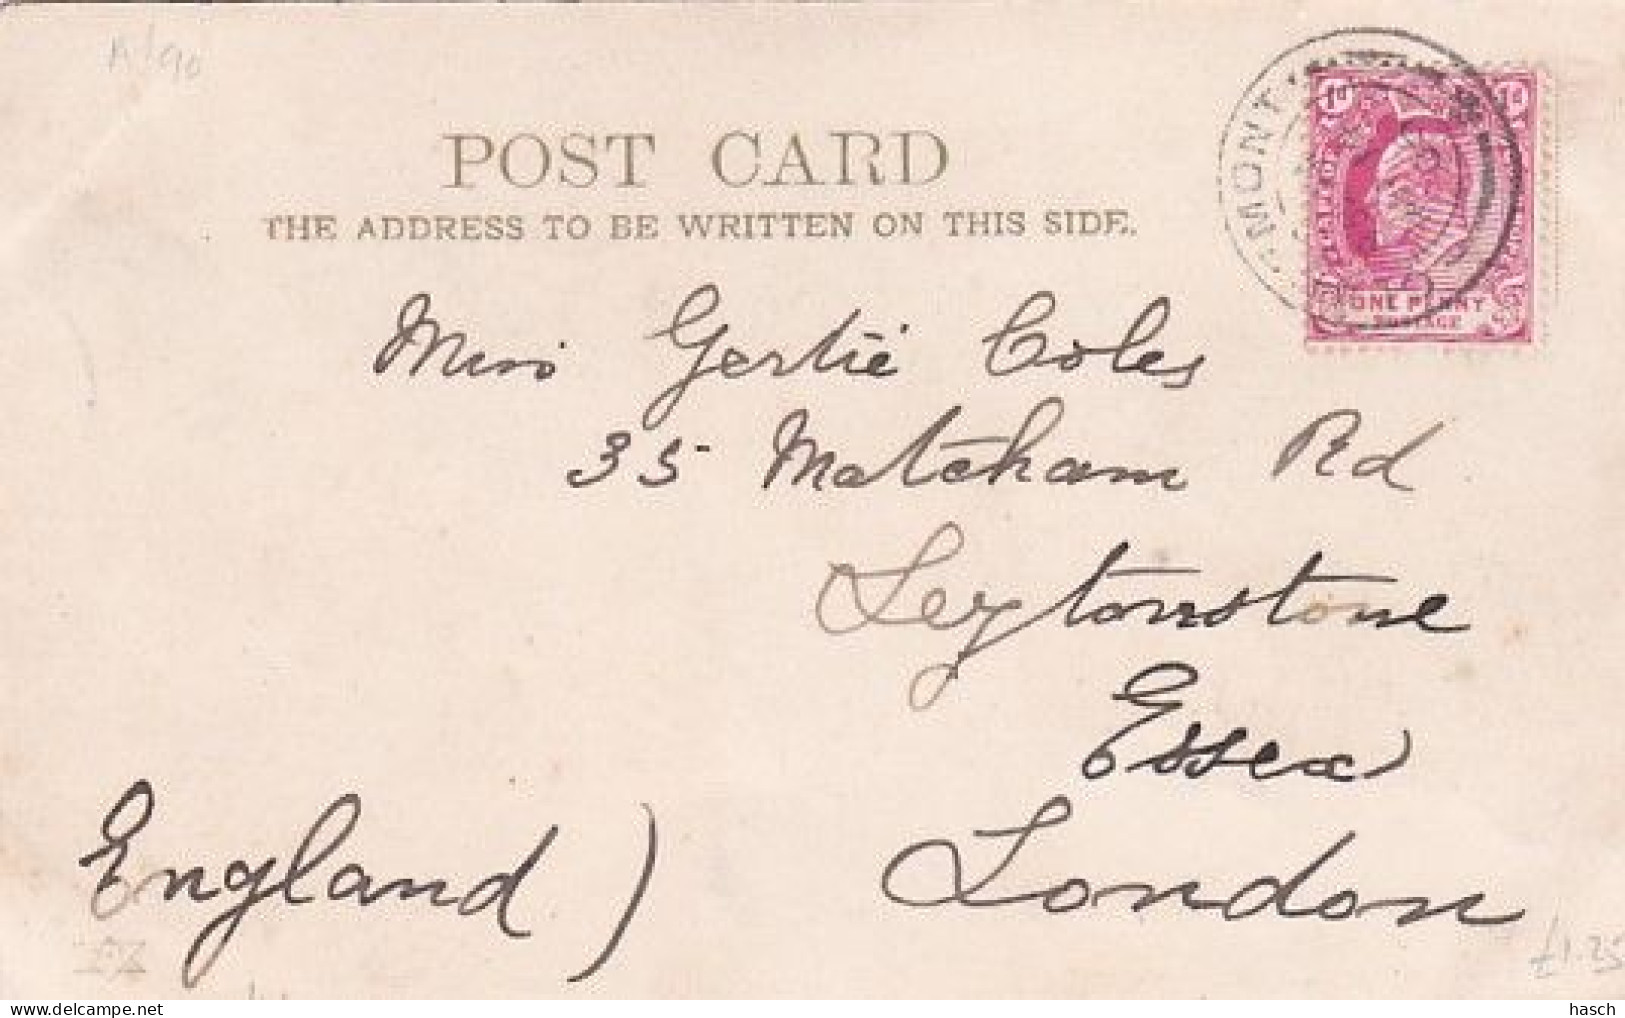 A/90
POST CARD
THE ADDRESS TO BE WRITTEN ON THIS SIDE.
MONT
1d 1d
ONE PENNY
POSTAGE
Miss Gertie Coles
35 Matcham Rd
Leytonstone
Essex
London
England)
£1.25
hasch